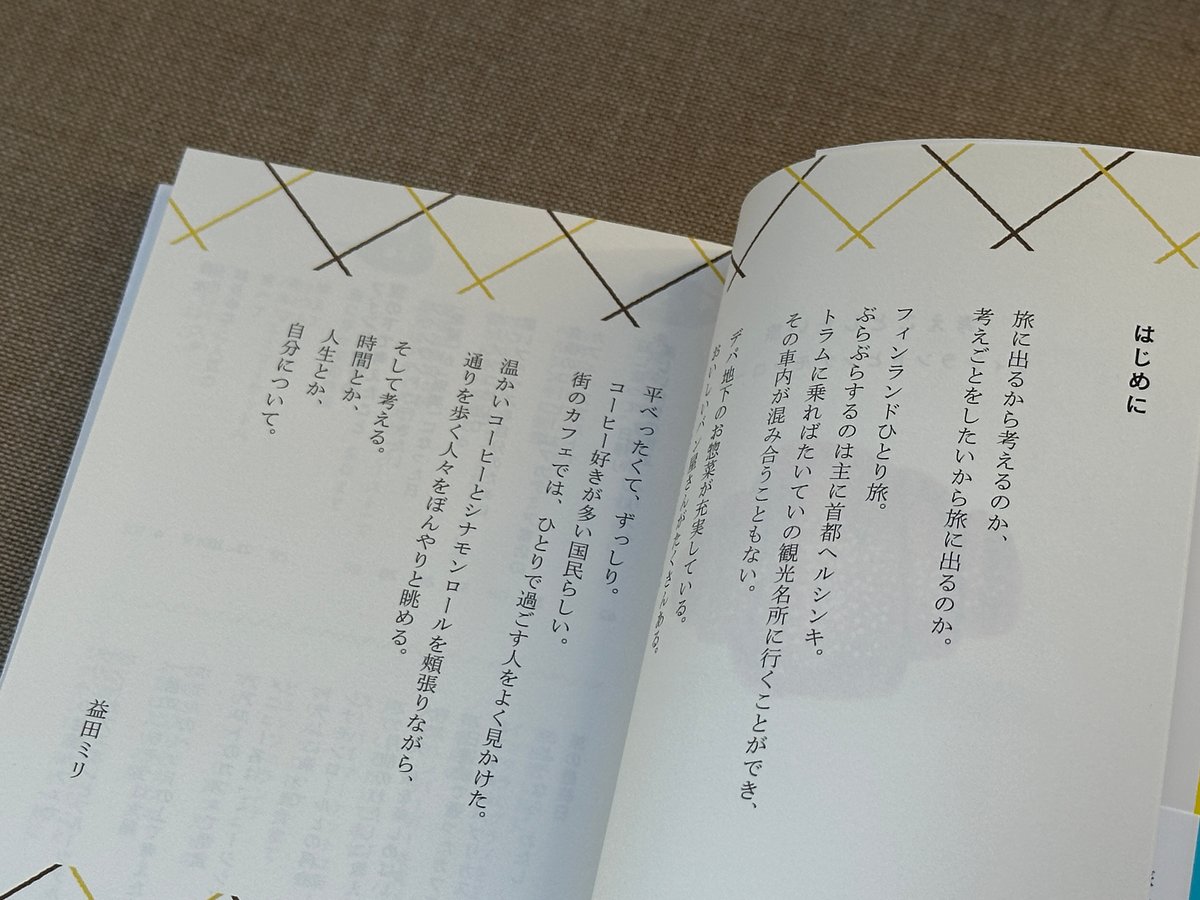 はじめに
旅に出るから考えるのか、
考えごとをしたいから旅に出るのか。
フィンランドひとり旅。
ぶらぶらするのは主に首都ヘルシンキ。
トラムに乗ればたいていの観光名所に行くことができ、
その車内が混み合うこともない。
デパ地下のお惣菜が充実している。
おいしいパン屋さんがたくさんある。
平べったくて、ずっしり。
コーヒー好きが多い国民らしい。
街のカフェでは、ひとりで過ごす人をよく見かけた。
温かいコーヒーとシナモンロールを頬張りながら、
通りを歩く人々をぼんやりと眺める。
そして考える。
時間とか、
人生とか、
自分について。
益田ミリ